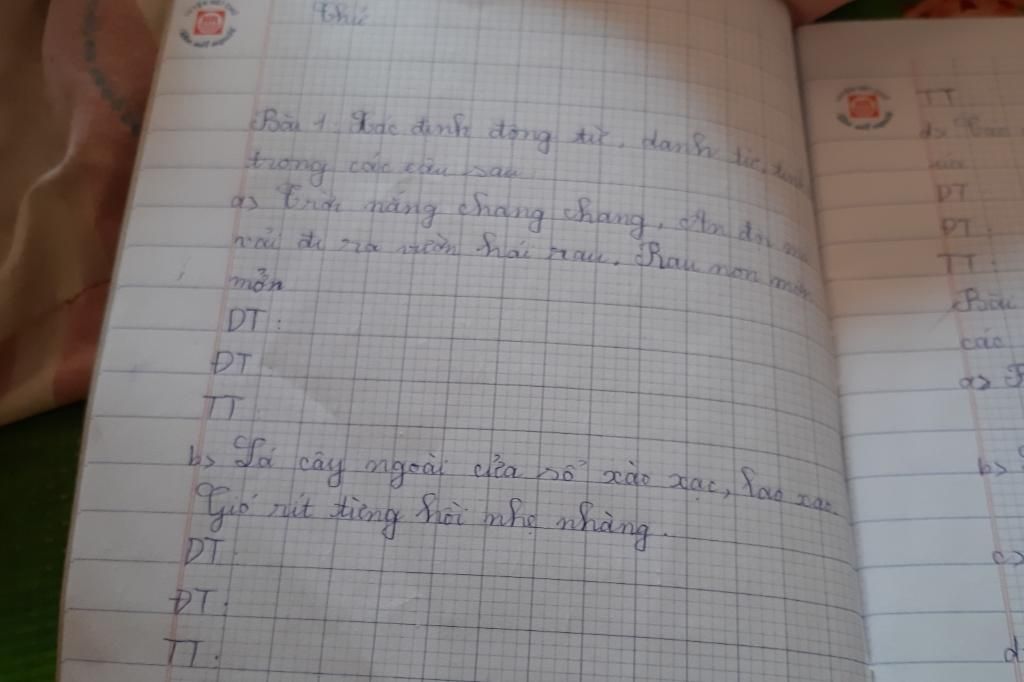 Thứ
Bài 1: Xác định động từ, danh từ, tính
trong các câu sau
a> Trời nắng chang chang. An đội
vải đi ra vườn hái rau. Rau non mơn
mởn
DT:
ĐT
TT
b> Lá cây ngoài cửa sổ xào xạc, lao xao.
Gió rít tiếng hồi nhẹ nhàng.
DT
ĐT:
TT:
TT
d>
DT
ĐT:
TT:
Bài
các
a>
b>
c>
d